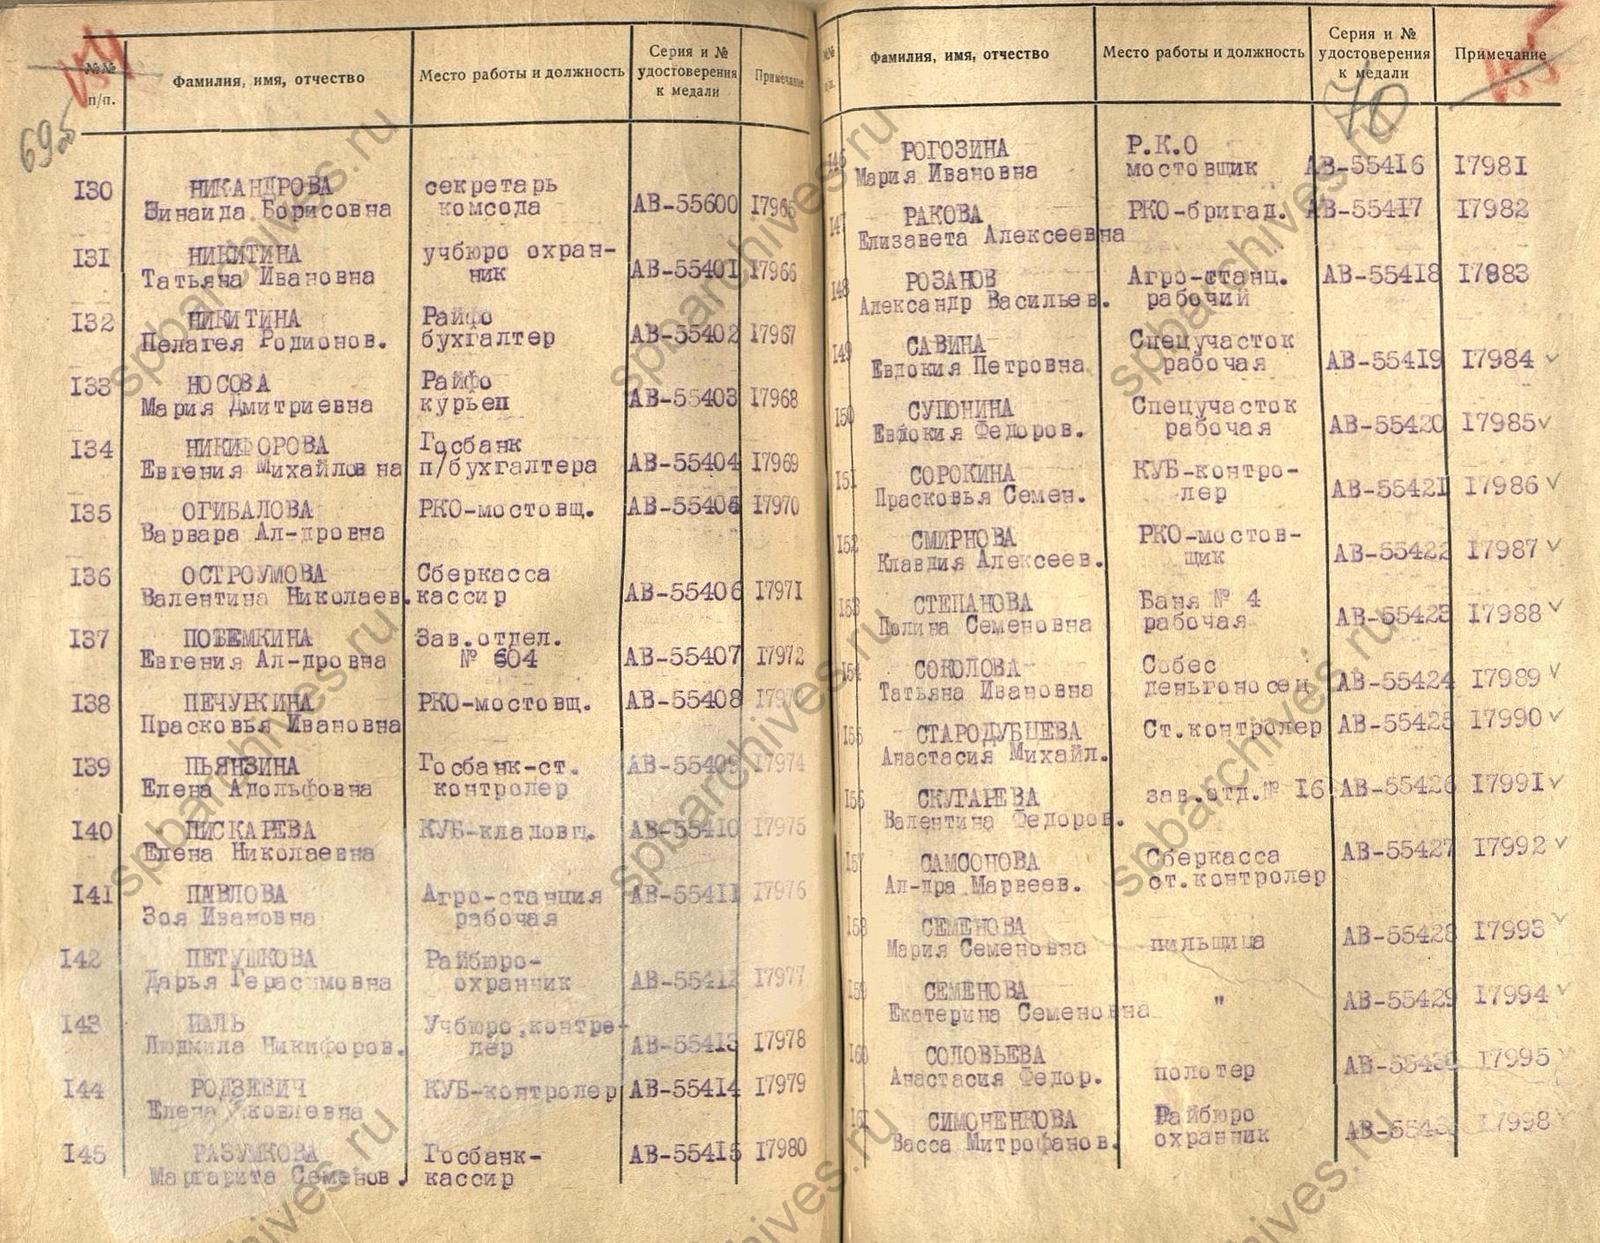 №№ п/п.
Фамилия, имя, отчество
Место работы и должность
Серия и № удостоверения к медали
Примечание
69об
130 НИКАНДРОВА секретарь
Зинаида Борисовна комсода АВ-55600 17965
131 НИКИТИНА учбюро охран-
Татьяна Ивановна ник АВ-55401 17966
132 НИКИТИНА Райфо
Пелагея Родионов. бухгалтер АВ-55402 17967
133 НОСОВА Райфо
Мария Дмитриевна курьер АВ-55403 17968
134 НИКИФОРОВА Госбанк
Евгения Михайловна п/бухгалтера АВ-55404 17969
135 ОГИБАЛОВА РКО-мостовщ. АВ-55405 17970
Варвара Ал-дровна
136 ОСТРОУМОВА Сберкасса
Валентина Николаев. кассир АВ-55406 17971
137 ПОТЕМКИНА Зав.отдел.
Евгения Ал-дровна № 604 АВ-55407 17972
138 ПЕЧУРКИНА РКО-мостовщ. АВ-55408
Прасковья Ивановна
139 ПЬЯНЗИНА Госбанк-ст. АВ-55409 17974
Елена Адольфовна контролер
140 ПИСКАРЕВА КУБ-кладовщ. АВ-55410 17975
Елена Николаевна
141 ПАВЛОВА Агро-станция АВ-55411 17976
Зоя Ивановна рабочая
142 ПЕТУШКОВА Райбюро-
Дарья Герасимовна охранник АВ-55412 17977
143 ПАЛЬ Учбюро,контро-
Людмила Никифоров. лер АВ-55413 17978
144 РОДЗЕВИЧ КУБ-контролер АВ-55414 17979
Елена Яковлевна
145 РАЗУМКОВА Госбанк- АВ-55415 17980
Маргарита Семенов. кассир
№№ п/п.
Фамилия, имя, отчество
Место работы и должность
Серия и № удостоверения к медали
Примечание
70
146 РОГОЗИНА Р.К.О
Мария Ивановна мостовщик АВ-55416 17981
147 РАКОВА РКО-бригад. АВ-55417 17982
Елизавета Алексеевна
148 РОЗАНОВ Агро-станц. АВ-55418 17983
Александр Васильев. рабочий
149 САВИНА Спецучасток
Евдокия Петровна рабочая АВ-55419 17984
150 СУПОНИНА Спецучасток
Евдокия Федоров. рабочая АВ-55420 17985
151 СОРОКИНА КУБ-контро-
Прасковья Семен. лер АВ-55421 17986
152 СМИРНОВА РКО-мостов-
Клавдия Алексеев. щик АВ-55422 17987
153 СТЕПАНОВА Баня № 4
Полина Семеновна рабочая АВ-55423 17988
154 СОКОЛОВА Собес
Татьяна Ивановна деньгоносец АВ-55424 17989
155 СТАРОДУБЦЕВА Ст.контролер АВ-55425 17990
Анастасия Михайл.
156 СКУГАРЕВА зав.отд.№ 16 АВ-55426 17991
Валентина Федоров.
157 САМСОНОВА Сберкасса АВ-55427 17992
Ал-дра Марвеев. ст.контролер
158 СЕМЕНОВА
Мария Семеновна пильщица АВ-55428 17993
159 СЕМЕНОВА " АВ-55429 17994
Екатерина Семеновна
160 СОЛОВЬЕВА
Анастасия Федор. полотер АВ-55430 17995
161 СИМОНЕНКОВА Райбюро
Васса Митрофанов. охранник 17998
spbarchives.ru